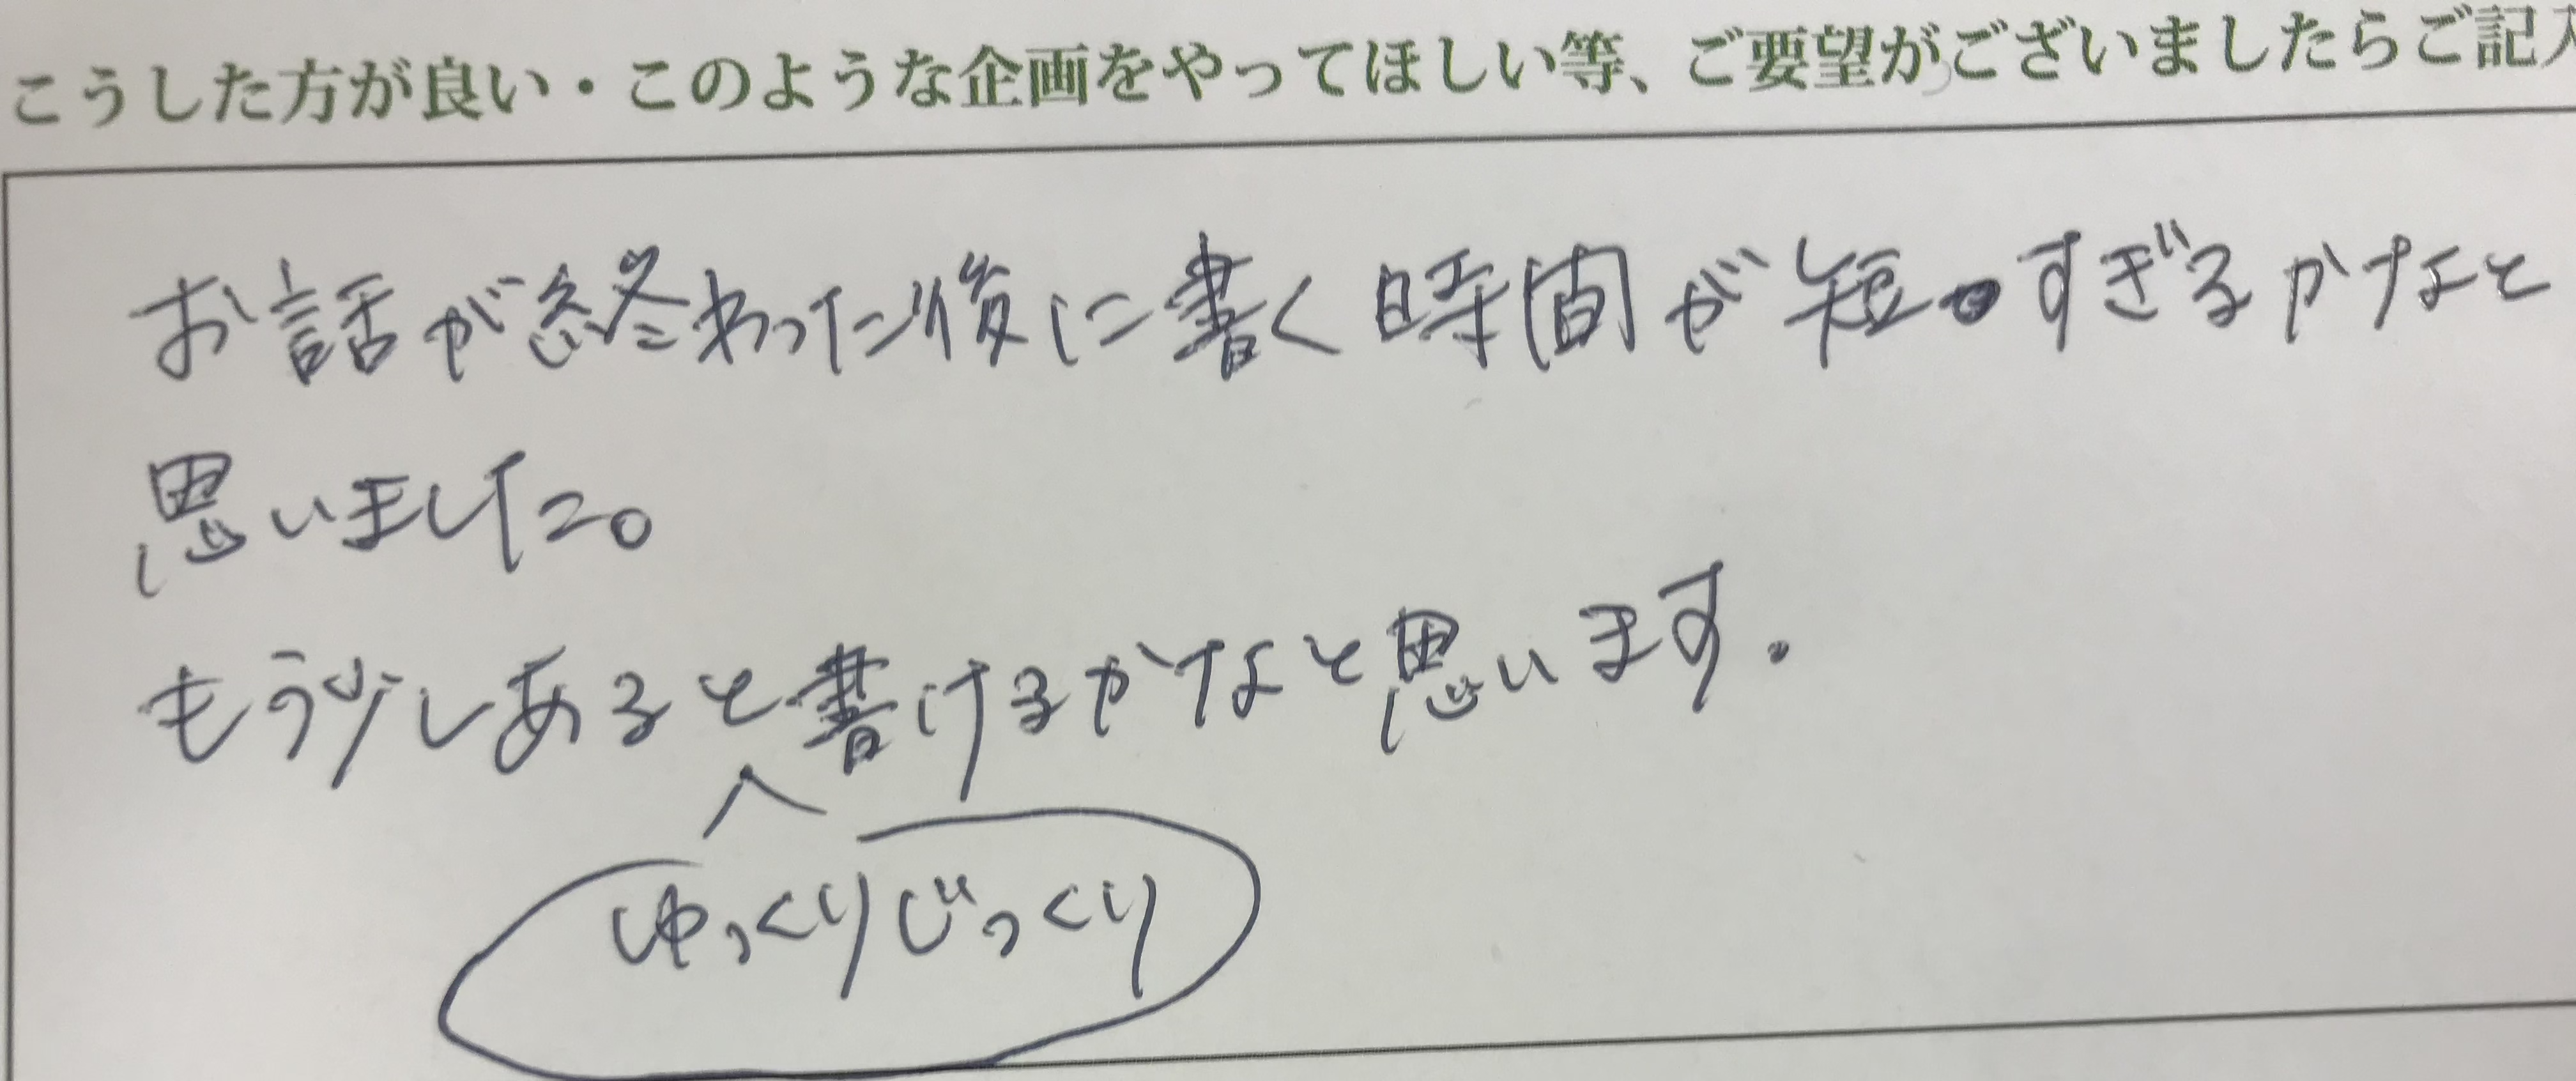 こうした方が良い・このような企画をやってほしい等、ご要望がございましたらご記入
お話が終わった後に書く時間が短すぎるかなと
思いました。
もう少しあると書けるかなと思います。
ゆっくりじっくり